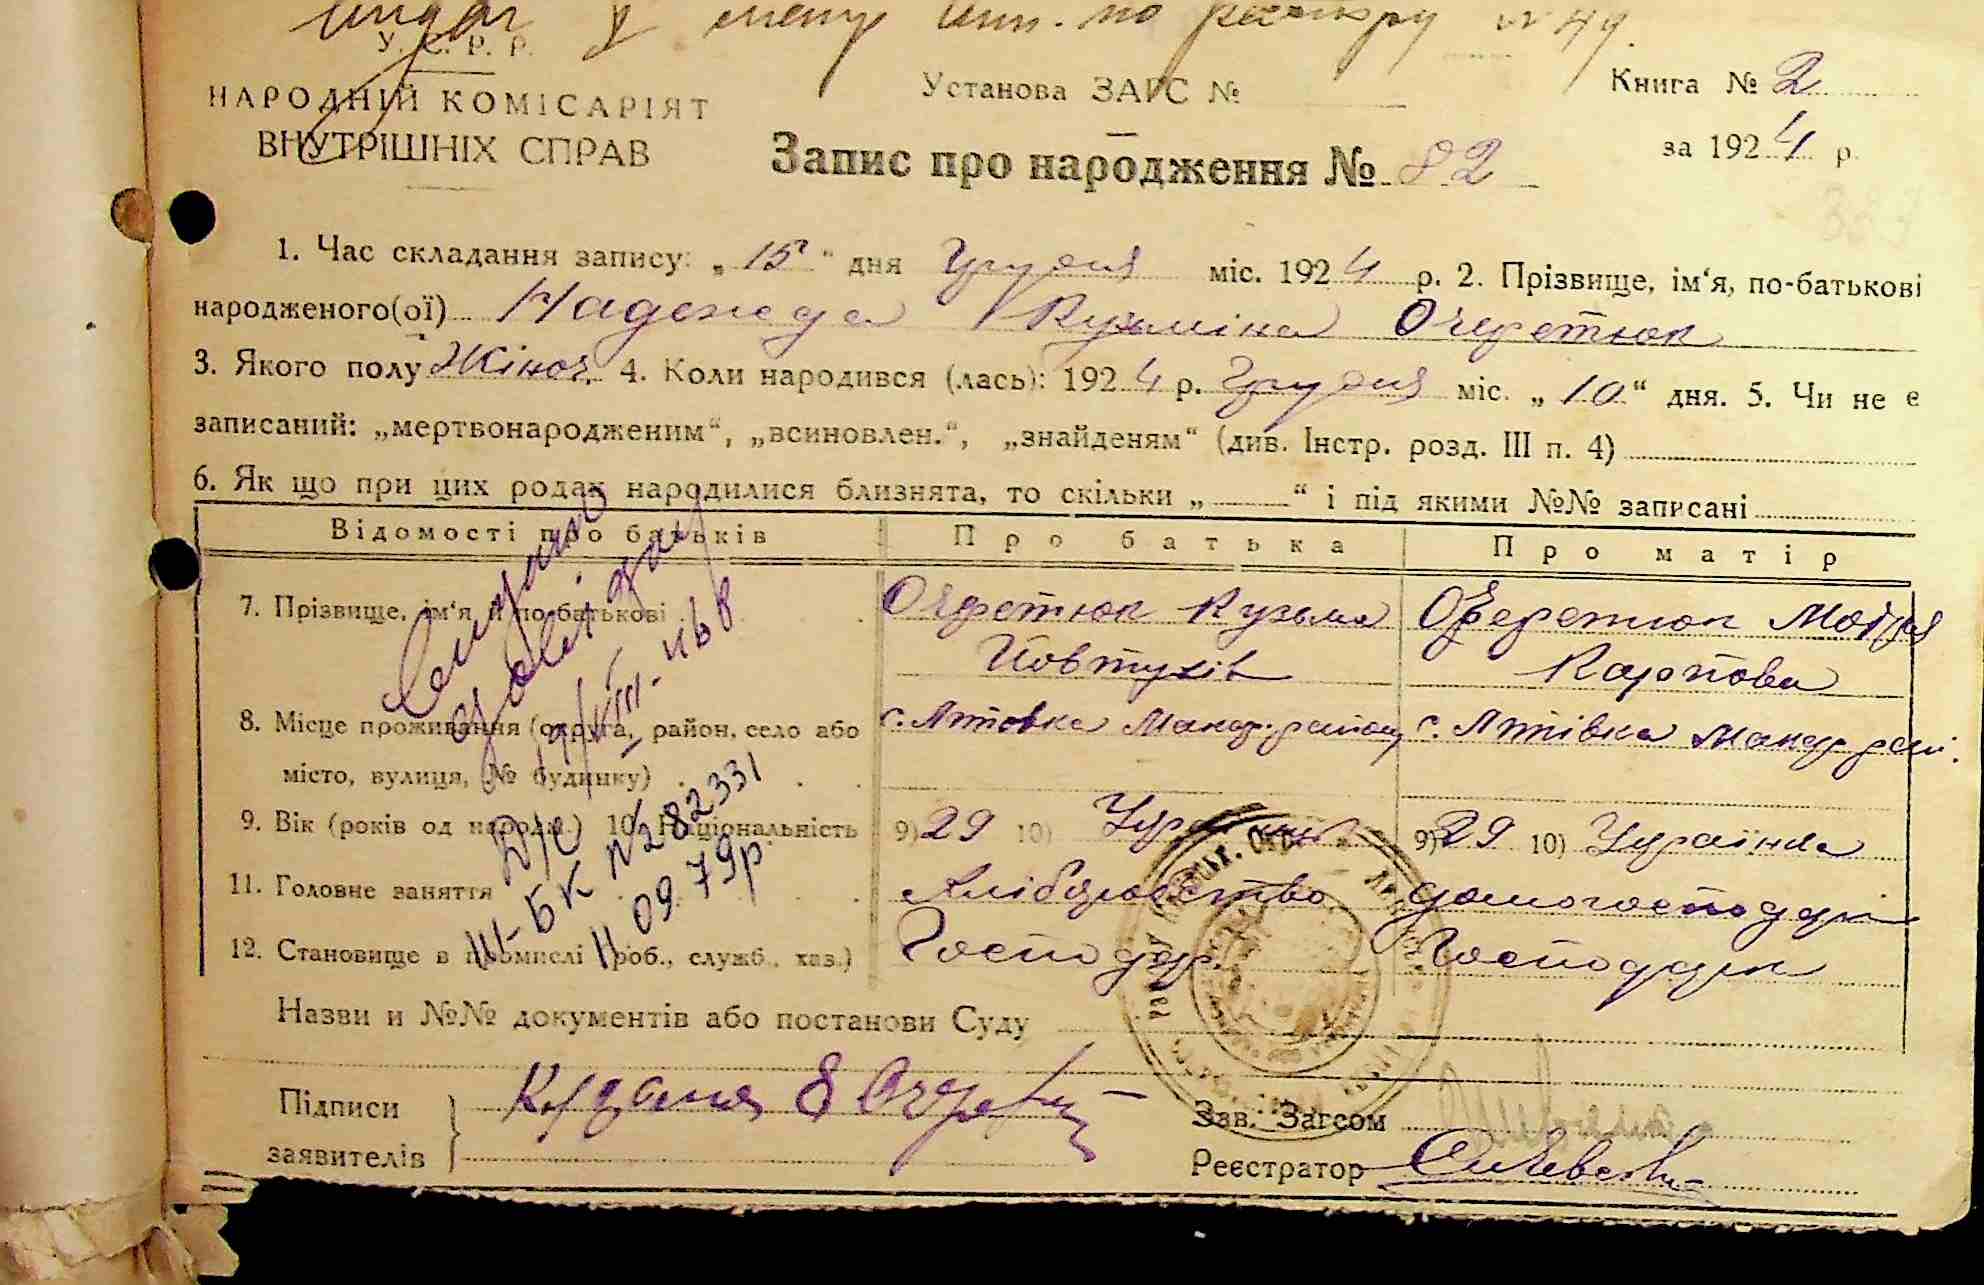 У. С. Р. Р.
НАРОДНІЙ КОМІСАРІЯТ
ВНУТРІШНІХ СПРАВ
Установа ЗАГС №
Книга № 2
за 1924 р.
Запис про народження № 82
1. Час складання запису: „15“ дня Грудня міс. 1924 р. 2. Прізвище, ім‘я, по-батькові
народженого(ої) Надежда Кузьміна Очеретюк
3. Якого полу Жіноч. 4. Коли народився (лась): 1924 р. Грудня міс. „10“ дня. 5. Чи не є
записаний: „мертвонародженим“, „всиновлен.“, „знайденям“ (див. Інстр. розд. III п. 4)
6. Як що при цих родах народилися близнята, то скільки „ “ і під якими №№ записані
Відомості про батьків Про батька Про матір
7. Прізвище, ім‘я й по-батькові Очеретюк Кузьма Очеретюк Мотря
Йовтухів Карпова
8. Місце проживання (округа, район, село або
місто, вулиця, № будинку)
9. Вік (років од народж.) 10. Національність 9) 29 10) 9) 29 10) Українка
11. Головне заняття Хліборобство
12. Становище в промислі (роб., служб., хаз.) Господар.
III-БК №282331
11 09 79р.
Назви и №№ документів або постанови Суду
Підписи
заявителів
Зав. Загсом
Реєстратор